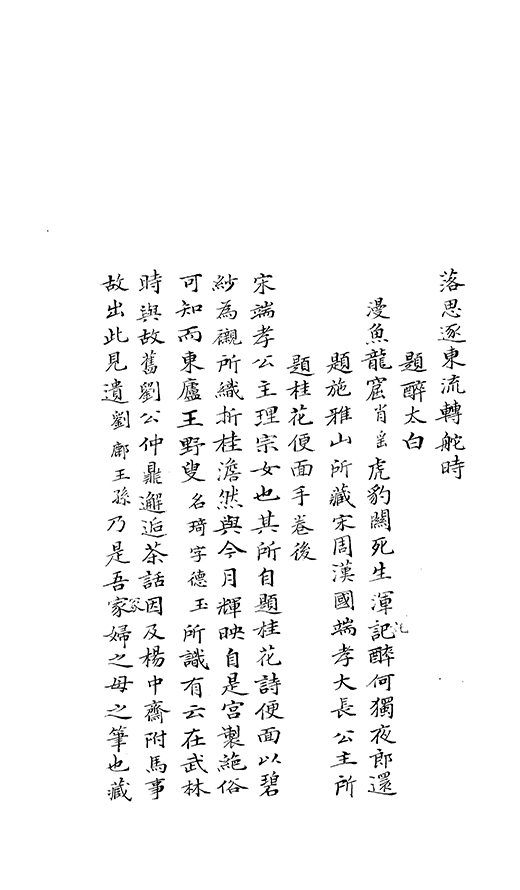 落思逐東流轉舵時
題醉太白
漫魚龍窟肖岳虎豹關死生渾記醉何獨夜郎還
題施雅山所藏宋周漢國端孝大長公主所
題桂花便面手卷後
宋端孝公主理宗女也其所自題桂花詩便面以碧
紗為襯所織折桂澹然與今月輝映自是宮製絕俗
可知而東廬王野叟名琦字德玉所識有云在武林
時與故舊劉公仲鼎邂逅茶話因及楊中齋附馬事
故出此見遺劉廓王孫乃是吾家婦之母之筆也藏